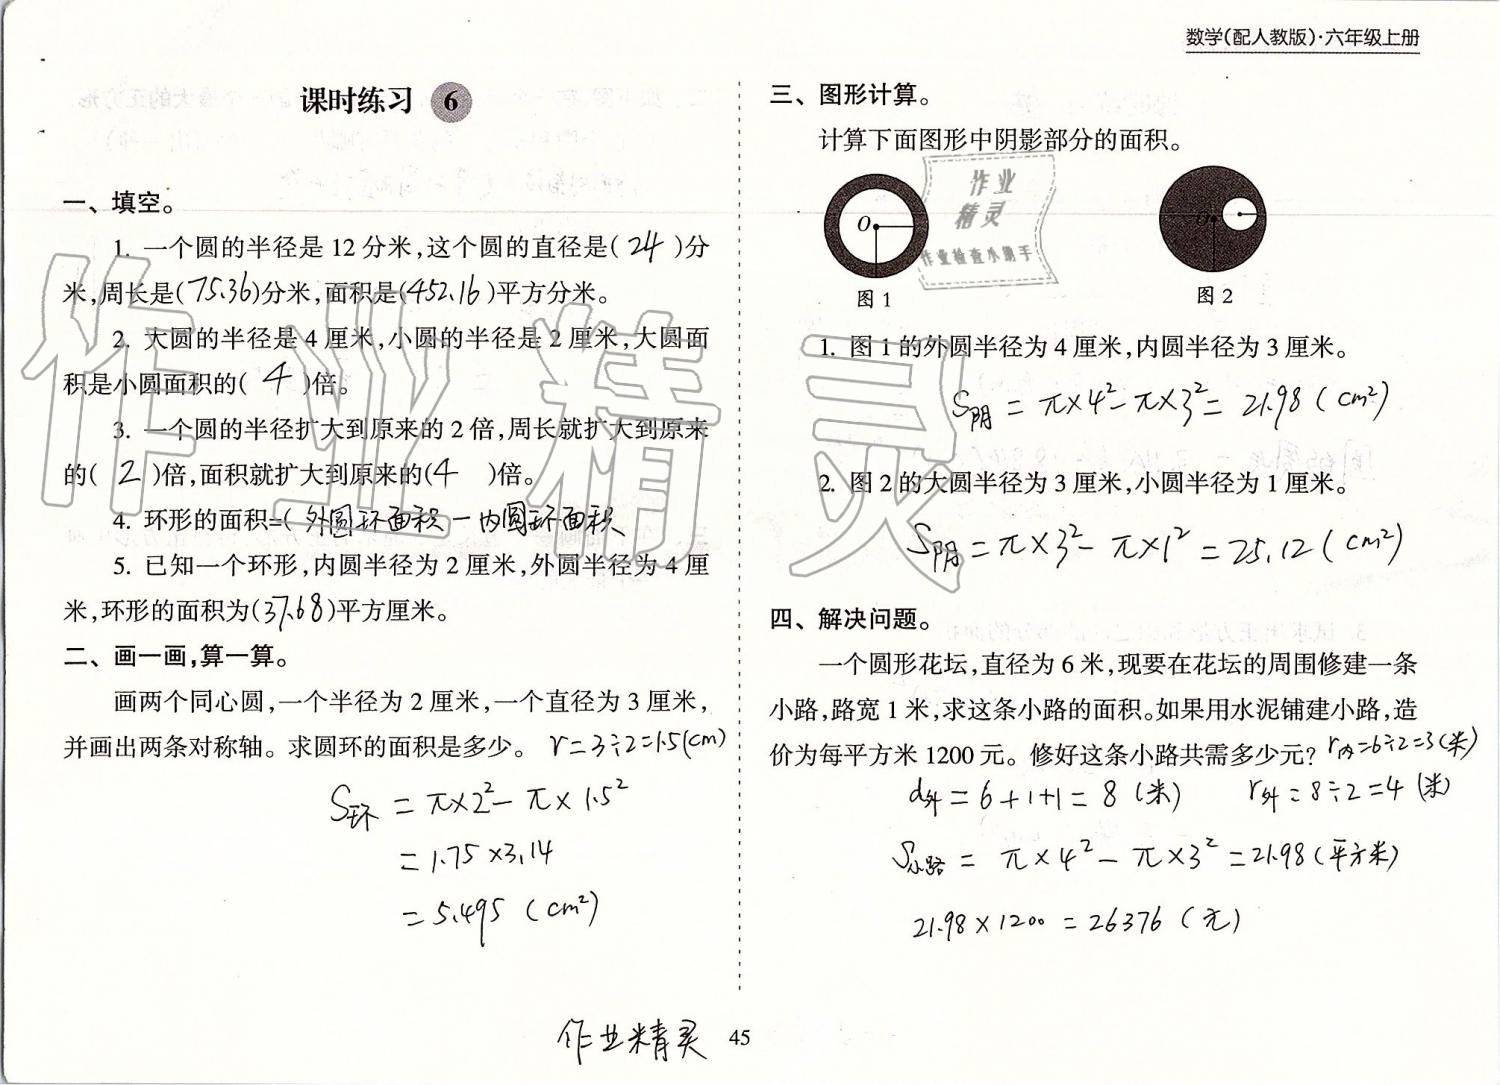 数学(配人教版)·六年级上册
课时练习 6
一、填空。
1. 一个圆的半径是 12 分米,这个圆的直径是( 24 )分
米,周长是(75.36)分米,面积是(452.16)平方分米。
2. 大圆的半径是 4 厘米,小圆的半径是 2 厘米,大圆面
积是小圆面积的( 4 )倍。
3. 一个圆的半径扩大到原来的 2 倍,周长就扩大到原来
的( 2 )倍,面积就扩大到原来的(4 )倍。
4. 环形的面积=( 外圆环面积－内圆环面积
5. 已知一个环形,内圆半径为 2 厘米,外圆半径为 4 厘
米,环形的面积为(37.68)平方厘米。
二、画一画,算一算。
画两个同心圆,一个半径为 2 厘米,一个直径为 3 厘米,
并画出两条对称轴。求圆环的面积是多少。 r=3÷2=1.5(cm)
S环 = π×2²-π×1.5²
=1.75×3.14
=5.495 (cm²)
三、图形计算。
计算下面图形中阴影部分的面积。
O
O
作业
精灵
作业检查小助手
图 1
图 2
1. 图 1 的外圆半径为 4 厘米,内圆半径为 3 厘米。
S阴 = π×4²-π×3² = 21.98 (cm²)
2. 图 2 的大圆半径为 3 厘米,小圆半径为 1 厘米。
S阴 = π×3²-π×1² = 25.12 (cm²)
四、解决问题。
一个圆形花坛,直径为 6 米,现要在花坛的周围修建一条
小路,路宽 1 米,求这条小路的面积。如果用水泥铺建小路,造
价为每平方米 1200 元。修好这条小路共需多少元? r内=6÷2=3(米)
d外=6+1+1=8 (米) r外=8÷2=4 (米)
S小路 = π×4²-π×3²=21.98(平方米)
21.98×1200=26376 (元)
作业精灵
45
作业精灵